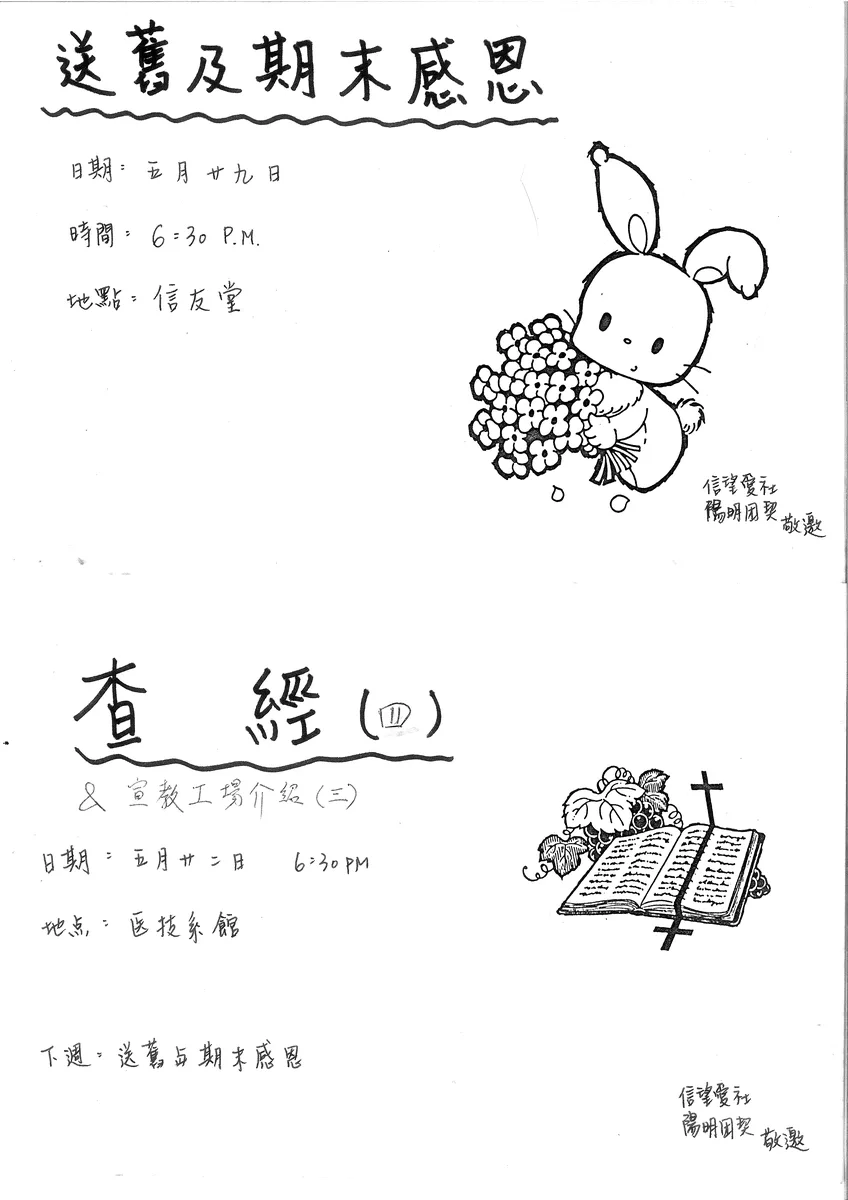 送舊及期末感恩
日期：五月廿九日
時間：6:30 P.M.
地點：信友堂
信望愛社
陽明团契
敬邀
查 經（四）
& 宣教工場介紹（三）
日期：五月廿二日 6:30PM
地点：医技系館
下週：送舊与期末感恩
信望愛社
陽明团契
敬邀